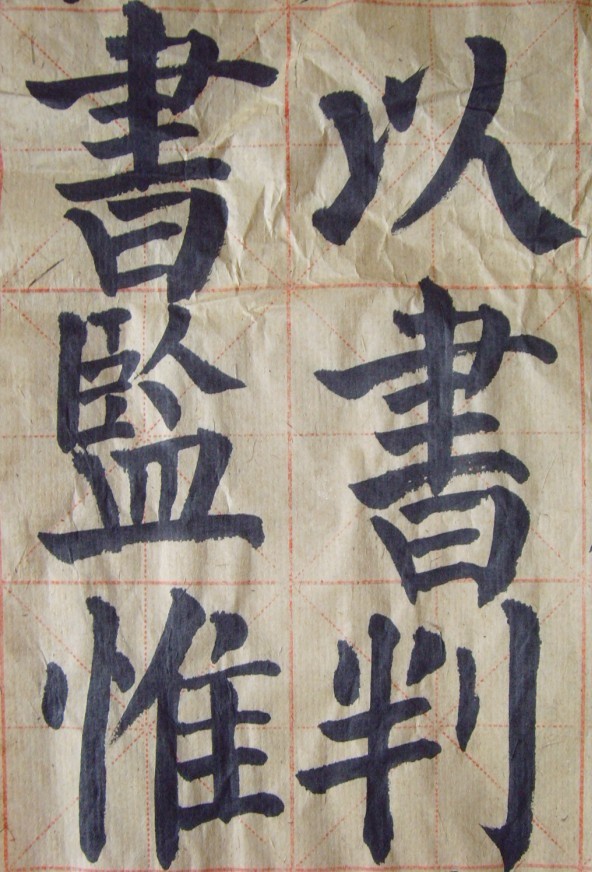 以書判
書監惟